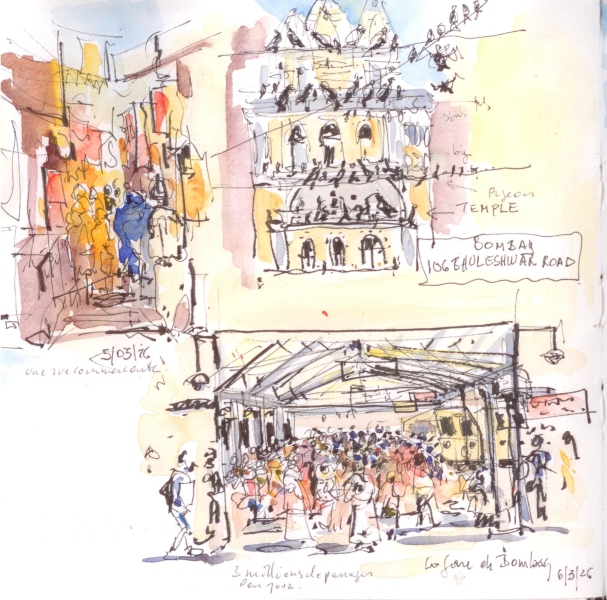 Pigeon
TEMPLE
BOMBAY
106 BHULESHWAR ROAD
5/03/26
une rue commercante
La gare de Bombay 6/3/26
3 millions de passager
par jour.